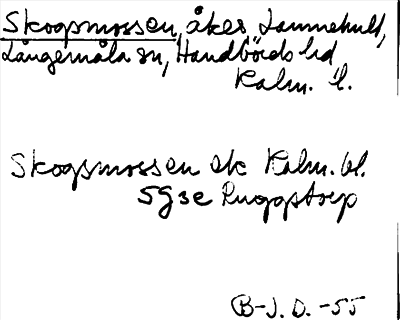 Skogsmossen, åker, Lammehult,
Långemåla sn, Handbörds hd
Kalm. l.
Skogsmossen ek Kalm. bl.
5G3e Ruggstorp
B-J. D. -55